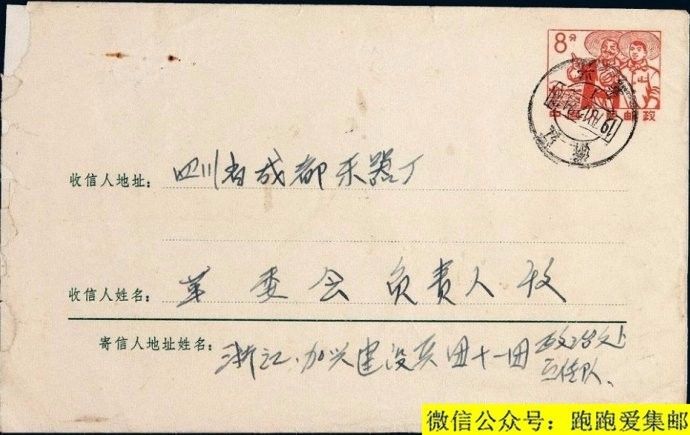 8分
中国人民邮政
收信人地址: 四川省成都乐器厂
收信人姓名: 革委会负责人收
寄信人地址姓名: 浙江.加兴建设兵团十一团政治处
宣传队.
微信公众号: 跑跑爱集邮